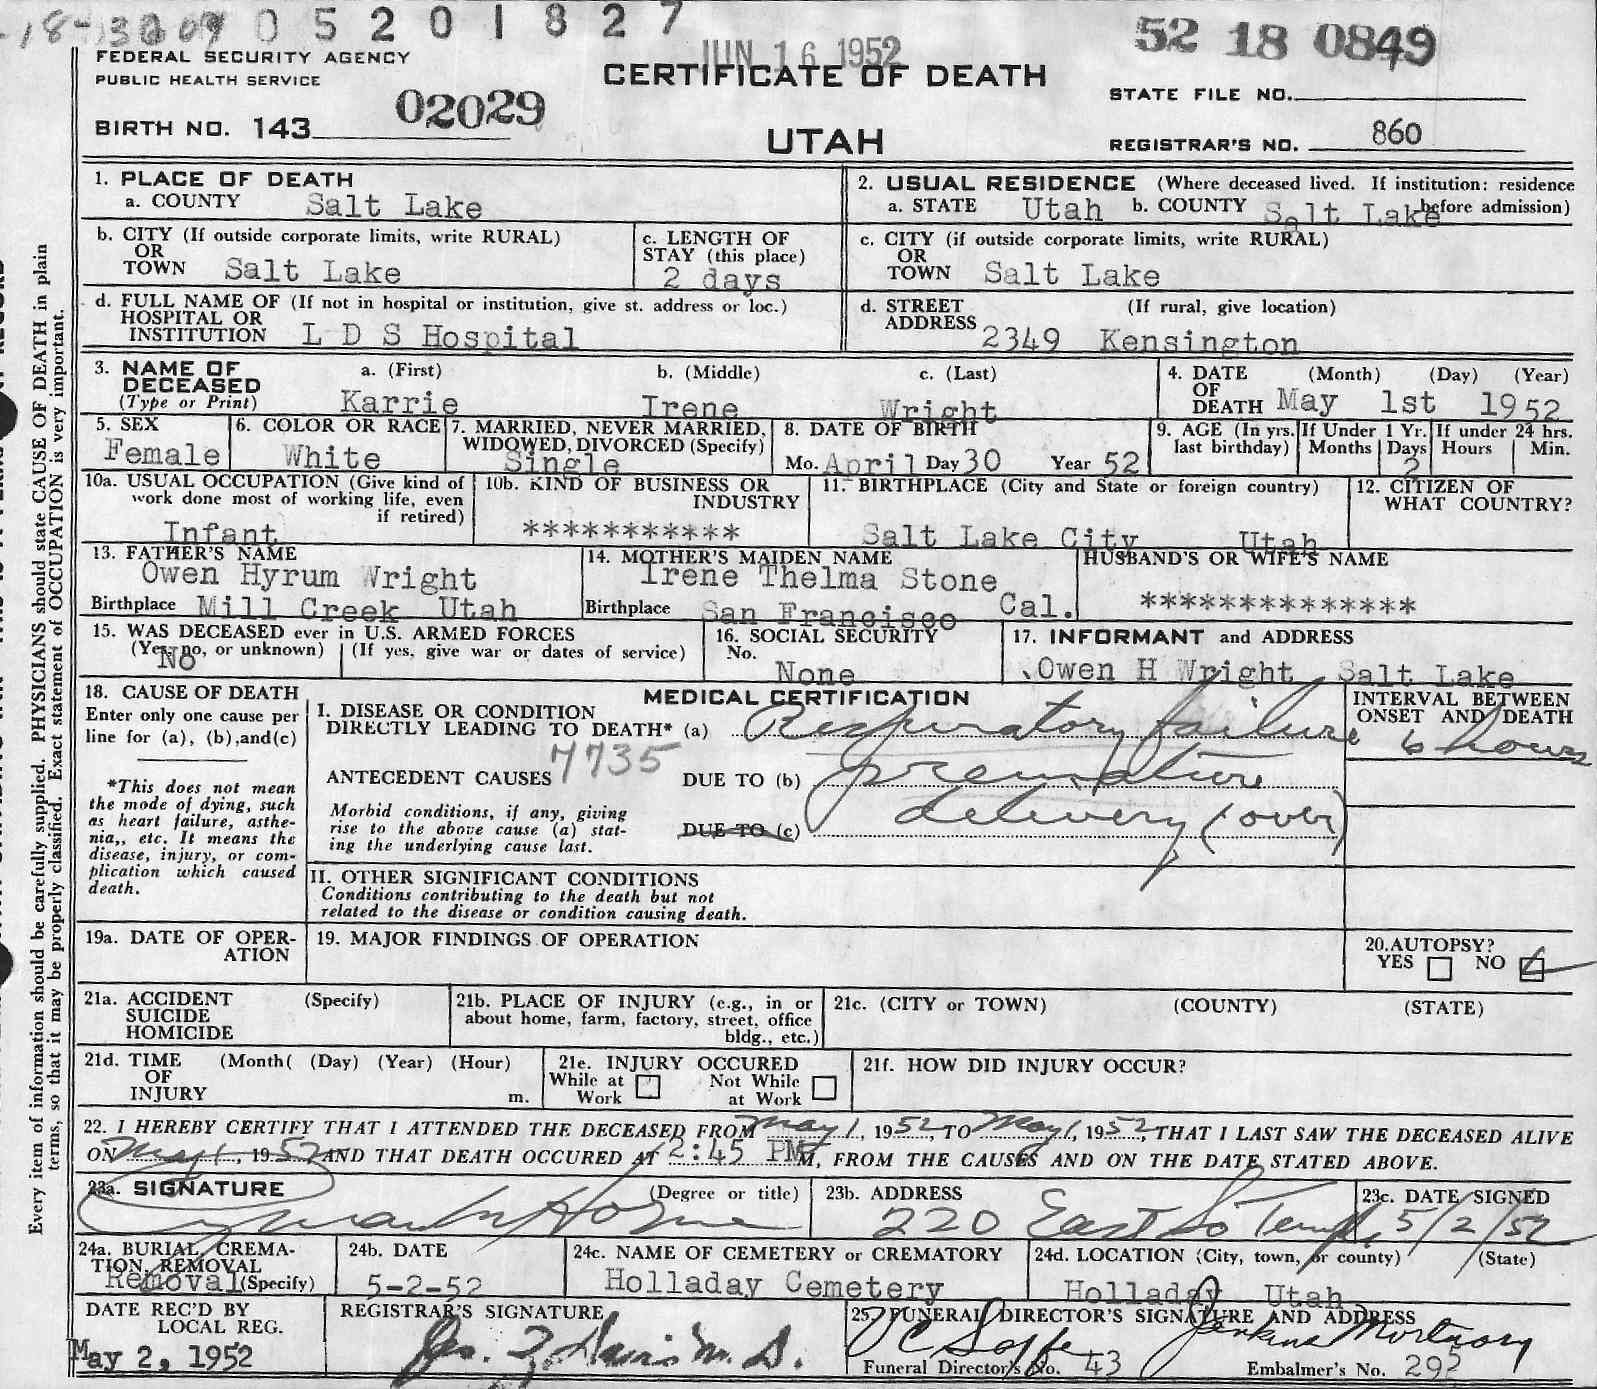 18-3209 0 5 2 0 1 8 2 7
JUN 16 1952
52 18 0849
FEDERAL SECURITY AGENCY
PUBLIC HEALTH SERVICE
CERTIFICATE OF DEATH
STATE FILE NO.
BIRTH NO. 143 02029
UTAH
REGISTRAR'S NO. 860
1. PLACE OF DEATH
a. COUNTY Salt Lake
2. USUAL RESIDENCE (Where deceased lived. If institution: residence before admission)
a. STATE Utah b. COUNTY Salt Lake
b. CITY (If outside corporate limits, write RURAL)
OR
TOWN Salt Lake
c. LENGTH OF
STAY (this place)
2 days
c. CITY (if outside corporate limits, write RURAL)
OR
TOWN Salt Lake
d. FULL NAME OF (If not in hospital or institution, give st. address or loc.)
HOSPITAL OR
INSTITUTION L D S Hospital
d. STREET (If rural, give location)
ADDRESS 2349 Kensington
3. NAME OF
DECEASED
(Type or Print)
a. (First) b. (Middle) c. (Last)
Karrie Irene Wright
4. DATE (Month) (Day) (Year)
OF
DEATH May 1st 1952
5. SEX
Female
6. COLOR OR RACE
White
7. MARRIED, NEVER MARRIED,
WIDOWED, DIVORCED (Specify)
Single
8. DATE OF BIRTH
Mo. April Day 30 Year 52
9. AGE (In yrs.
last birthday)
If Under 1 Yr.
Months Days
2
If under 24 hrs.
Hours Min.
10a. USUAL OCCUPATION (Give kind of
work done most of working life, even
if retired)
Infant
10b. KIND OF BUSINESS OR
INDUSTRY
***********
11. BIRTHPLACE (City and State or foreign country)
Salt Lake City Utah
12. CITIZEN OF
WHAT COUNTRY?
13. FATHER'S NAME
Owen Hyrum Wright
Birthplace Mill Creek Utah
14. MOTHER'S MAIDEN NAME
Irene Thelma Stone
Birthplace San Francisco Cal.
HUSBAND'S OR WIFE'S NAME
**************
15. WAS DECEASED ever in U.S. ARMED FORCES
(Yes, no, or unknown) (If yes, give war or dates of service)
No
16. SOCIAL SECURITY
No.
None
17. INFORMANT and ADDRESS
Owen H Wright Salt Lake
18. CAUSE OF DEATH
Enter only one cause per
line for (a), (b),and(c)
*This does not mean
the mode of dying, such
as heart failure, asthe-
nia,, etc. It means the
disease, injury, or com-
plication which caused
death.
MEDICAL CERTIFICATION
I. DISEASE OR CONDITION
DIRECTLY LEADING TO DEATH* (a) Respiratory failure
INTERVAL BETWEEN
ONSET AND DEATH
6 hours
7735
ANTECEDENT CAUSES DUE TO (b) premature
Morbid conditions, if any, giving
rise to the above cause (a) stat-
ing the underlying cause last.
DUE TO (c) delivery (over)
II. OTHER SIGNIFICANT CONDITIONS
Conditions contributing to the death but not
related to the disease or condition causing death.
19a. DATE OF OPER-
ATION
19. MAJOR FINDINGS OF OPERATION
20.AUTOPSY?
YES NO
21a. ACCIDENT (Specify)
SUICIDE
HOMICIDE
21b. PLACE OF INJURY (e.g., in or
about home, farm, factory, street, office
bldg., etc.)
21c. (CITY or TOWN) (COUNTY) (STATE)
21d. TIME (Month( (Day) (Year) (Hour)
OF
INJURY m.
21e. INJURY OCCURED
While at Work Not While at Work
21f. HOW DID INJURY OCCUR?
22. I HEREBY CERTIFY THAT I ATTENDED THE DECEASED FROM May 1, 1952, TO May 1, 1952, THAT I LAST SAW THE DECEASED ALIVE
ON May 1, 1952 AND THAT DEATH OCCURED AT 2:45 PM, FROM THE CAUSES AND ON THE DATE STATED ABOVE.
23a. SIGNATURE (Degree or title)
23b. ADDRESS
220 East So Temple
23c. DATE SIGNED
5/2/52
24a. BURIAL, CREMA-
TION, REMOVAL
Removal (Specify)
24b. DATE
5-2-52
24c. NAME OF CEMETERY or CREMATORY
Holladay Cemetery
24d. LOCATION (City, town, or county) (State)
Holladay Utah
DATE REC'D BY
LOCAL REG.
May 2, 1952
REGISTRAR'S SIGNATURE
25. FUNERAL DIRECTOR'S SIGNATURE AND ADDRESS
Jenkins Mortuary
Funeral Director's No. 43 Embalmer's No. 295
Every item of information should be carefully supplied. PHYSICIANS should state CAUSE OF DEATH in plain
terms, so that it may be properly classified. Exact statement of OCCUPATION is very important.